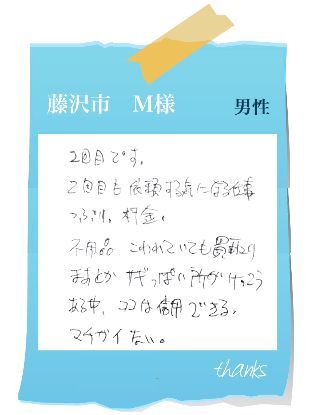 藤沢市 M様 男性
2回目です。
2回目も依頼する気になる仕事
っぷり。料金。
不用品 こわれていても買取り
ますとか サギっぽい所がけっこう
ある中、ココは信用できる。
マチガイない。
thanks